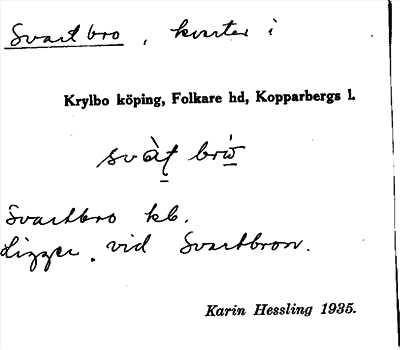 Svartbro, kvarter i
Krylbo köping, Folkare hd, Kopparbergs l.
svàt brὼ
Svartbro kb.
Ligger vid Svartbron.
Karin Hessling 1935.